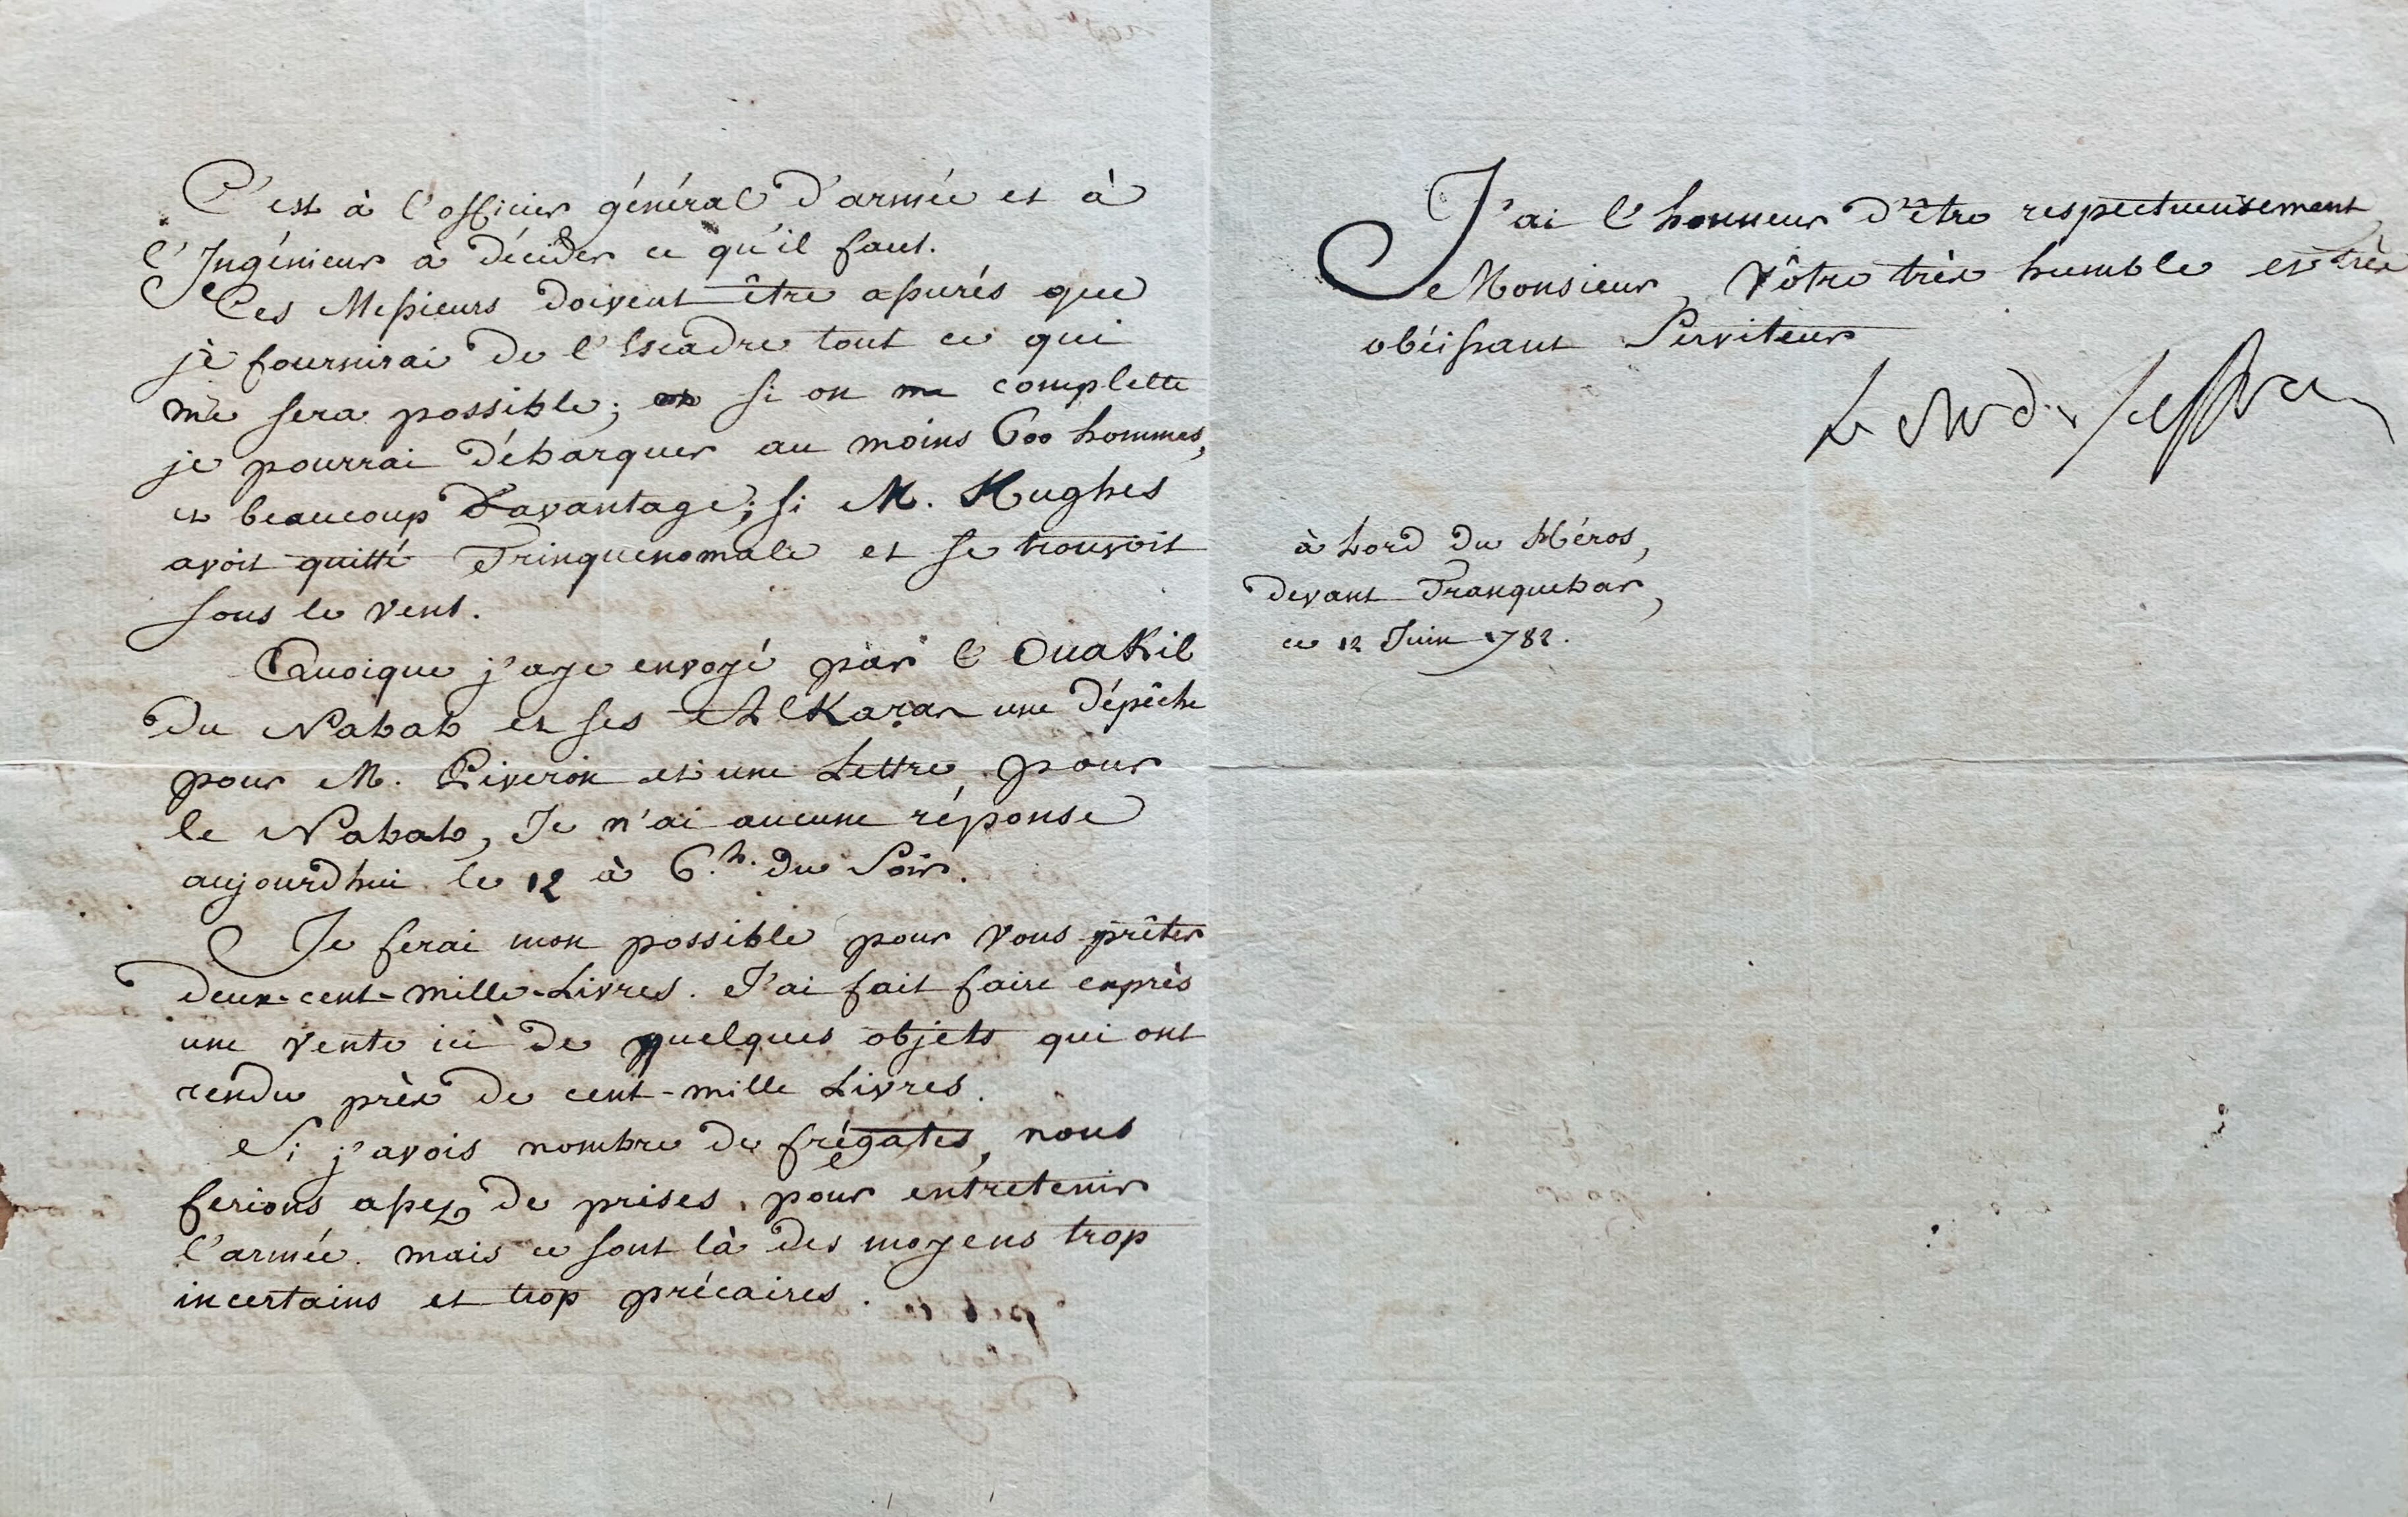 C'est à l'officier général d'armée et à
l'Ingénieur à décider ce qu'il faut.
Ces Messieurs doivent être assurés que
je fournirai de l'Escadre tout ce qui
me sera possible; si on me complette
je pourrai débarquer au moins 600 hommes,
et beaucoup davantage; si M. Hughes
avoit quitté Trinquenomale et se trouvoit
sous le vent.
Quoique j'aye envoyé par l'Ouakil
du Nabab et ses Alkaras une dépêche
pour M. Piveron et une Lettre pour
le Nabab, Je n'ai aucune réponse
aujourdhui le 12 à 6.h. du Soir.
Je ferai mon possible pour vous prêter
deux-cent-mille-Livres. J'ai fait faire exprès
une vente ici de quelques objets qui ont
rendu près de cent-mille Livres.
Si j'avois nombre de frégates, nous
ferions assez de prises, pour entretenir
l'armée. mais ce sont là des moyens trop
incertains et trop précaires.
J'ai l'honneur d'être respectueusement
Monsieur, Vôtre très humble et très
obéissant Serviteur
Le Ch. de Suffren
à bord du Héros,
devant Tranquebar,
ce 12 Juin 1782.